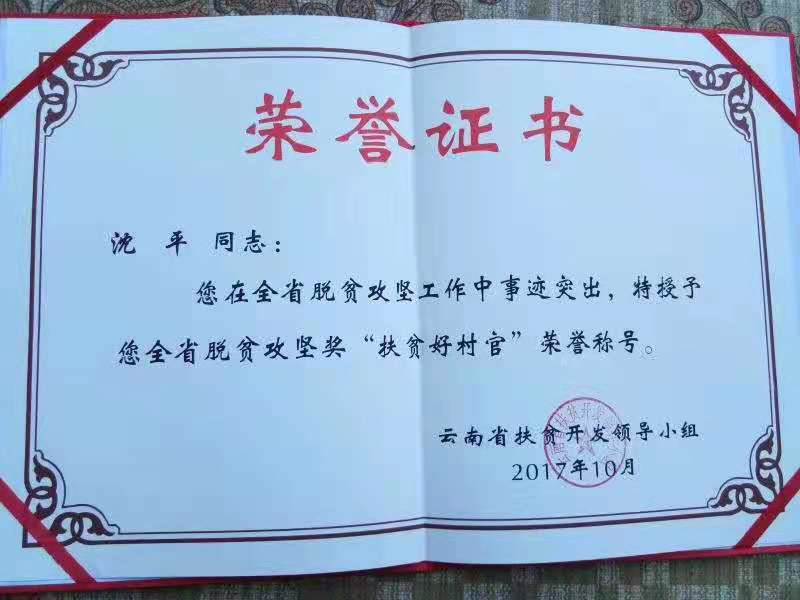 荣誉证书
沈 平 同志：
您在全省脱贫攻坚工作中事迹突出，特授予
您全省脱贫攻坚奖“扶贫好村官”荣誉称号。
云南省扶贫开发领导小组
2017年10月